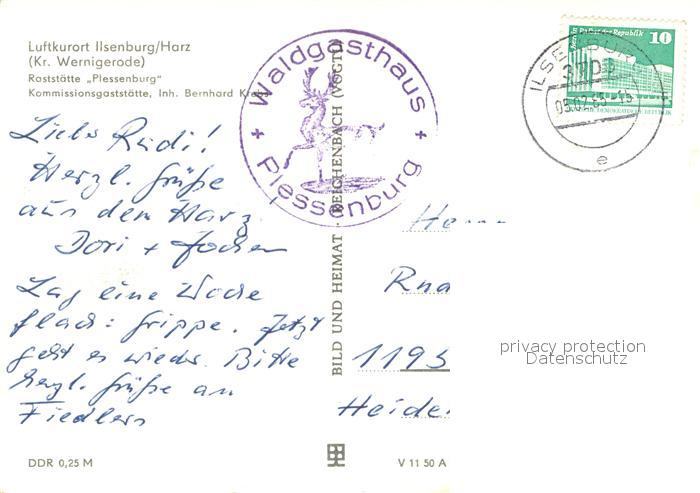 Luftkurort Ilsenburg/Harz
(Kr. Wernigerode)
Raststätte „Plessenburg"
Kommissionsgaststätte, Inh. Bernhard Krebs
Liebe Rudi!
Herzl. Grüße
aus dem Harz
Dori + Jochen
Lag eine Woche
flach: Grippe. Jetzt
geht es wieder. Bitte
herzl. Grüße an
Fiedlers
DDR 0,25 M
+ Waldgasthaus +
Plessenburg
BILD UND HEIMAT · REICHENBACH (VOGTL)
V 11 50 A
Palast der Republik
10
DEUTSCHE DEMOKRATISCHE REPUBLIK
ILSENBURG
3705
e
1195
Heide
privacy protection
Datenschutz